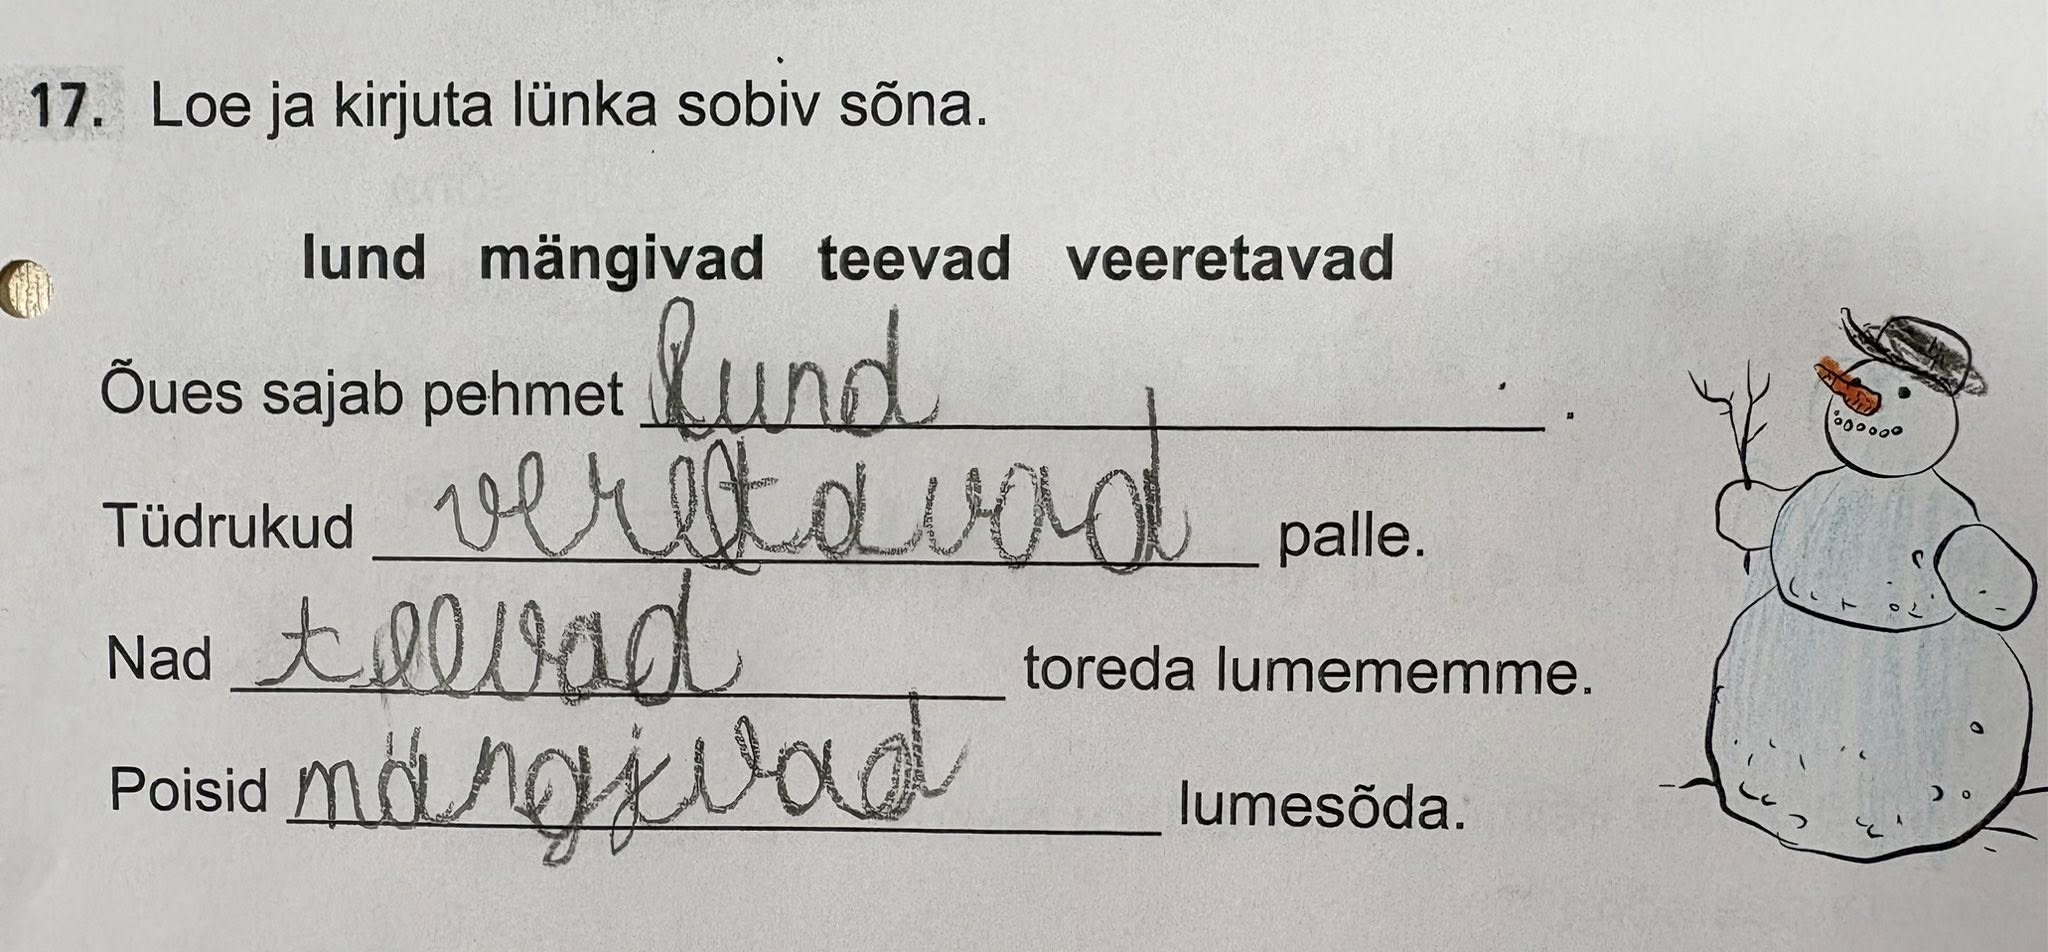 17. Loe ja kirjuta lünka sobiv sõna.
lund mängivad teevad veeretavad
Õues sajab pehmet lund .
Tüdrukud veretavad palle.
Nad teevad toreda lumememme.
Poisid mängjvad lumesõda.